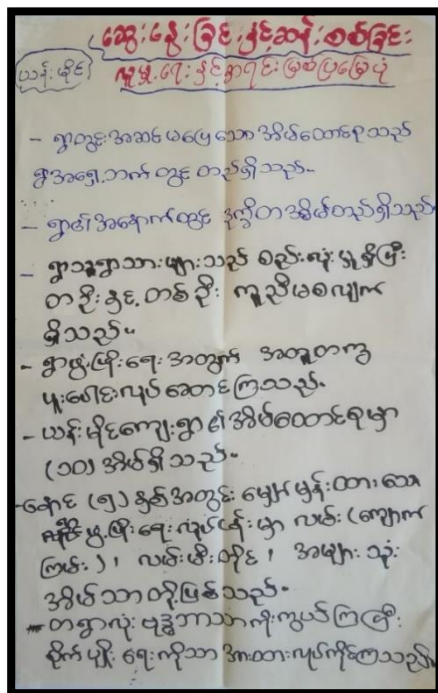 ဆွေးနွေးခြင်းနှင့်ဆန်းစစ်ခြင်း
ယန်းမိုင်
လူမှုရေးနှင့်စာရင်းမြစ်ပြမြေပုံ
- ရွာတွင်းအဆင်မပြေသောအိမ်ထောင်စုသည်
ရွာအရှေ့ဘက်တွင် တည်ရှိသည်။
- ရွာ၏အနောက်တွင် ဒုက္ခိတအိမ်တည်ရှိသည်။
- ရွာသူရွာသားများသည် စည်းလုံးမှုရှိပြီး
တဦးနှင့်တစ်ဦး ကူညီမစလျက်
ရှိသည်။
- ရွာဖွံ့ဖြိုးရေးအတွက် အတူတကွ
ပူးပေါင်းလုပ်ဆောင်ကြသည်။
- ယန်းမိုင်ကျေးရွာ၏အိမ်ထောင်စုမှာ
(၁၀) အိမ်ရှိသည်။
- နောင် (၅) နှစ်အတွင်း မျှော်မှန်းထားသော
ဖွံ့ဖြိုးရေးလုပ်ငန်းမှာ လမ်း (ကျောက်
ကြမ်း)၊ လမ်းမီးတိုင်၊ အများသုံး
အိမ်သာတို့ဖြစ်သည်။
- တရွာလုံး ဗုဒ္ဓဘာသာကိုးကွယ်ကြပြီး
စိုက်ပျိုးရေးကိုသာ အားထားလုပ်ကိုင်ကြသည်။